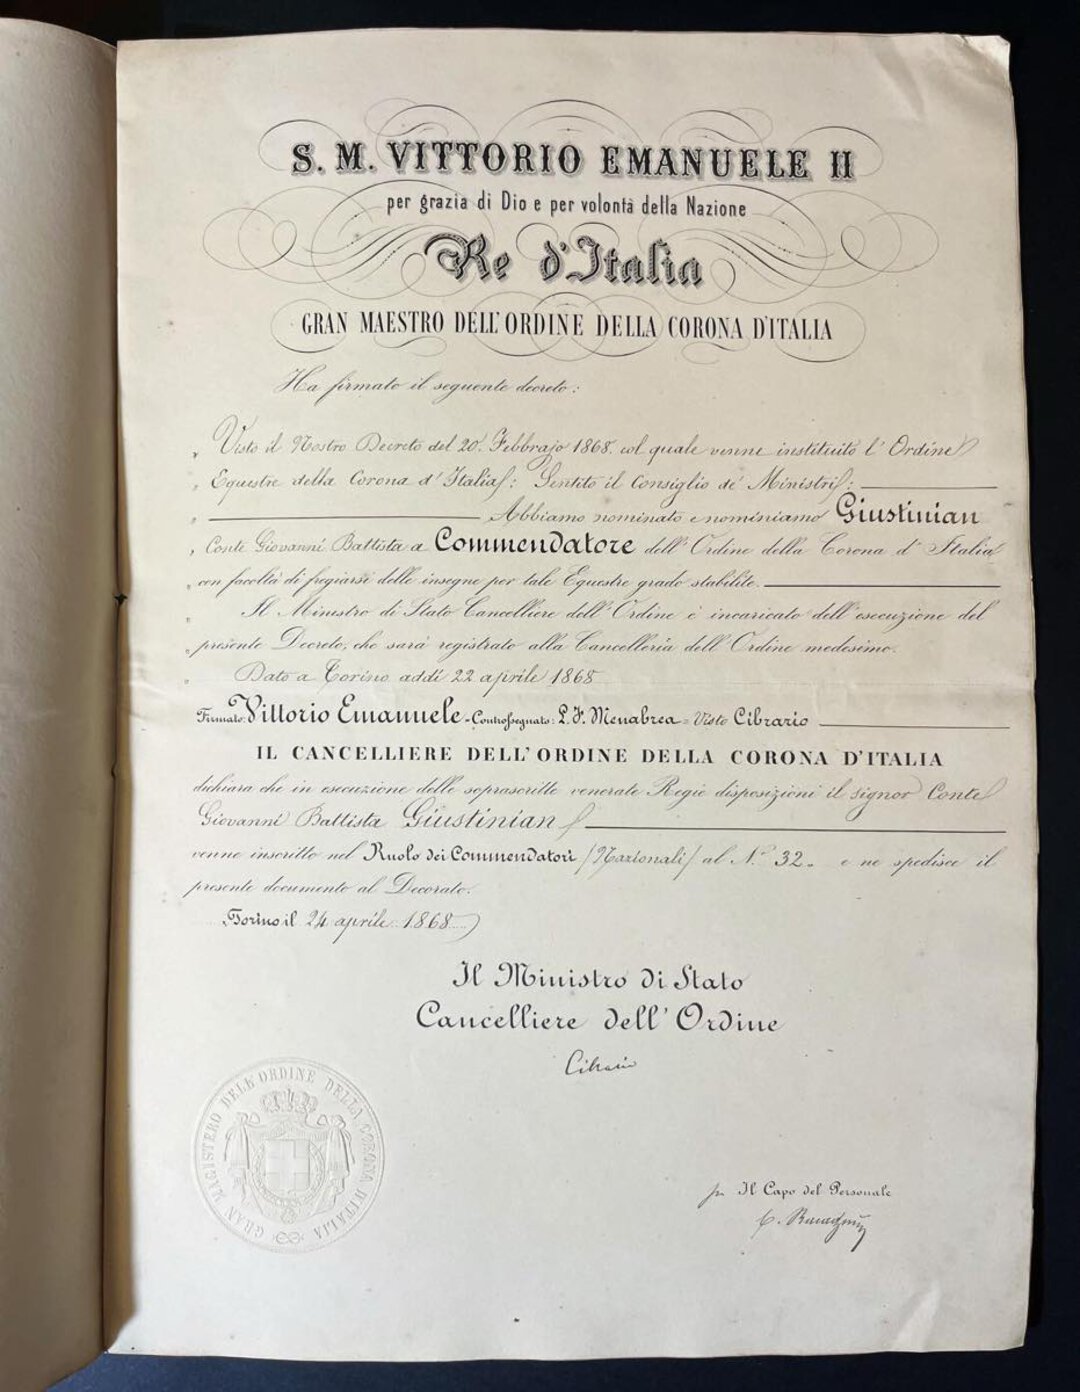 S. M. VITTORIO EMANUELE II
per grazia di Dio e per volontà della Nazione
Re d'Italia
GRAN MAESTRO DELL'ORDINE DELLA CORONA D'ITALIA
Ha firmato il seguente decreto:
„ Visto il Nostro Decreto del 20. Febbrajo 1868. col quale venne instituito l'Ordine
„ Equestre della Corona d'Italia: Sentito il Consiglio de' Ministri:
„ Abbiamo nominato e nominiamo Giustinian
„ Conte Giovanni Battista a Commendatore dell'Ordine della Corona d'Italia
„ con facoltà di fregiarsi delle insegne per tale Equestre grado stabilite.
„ Il Ministro di Stato Cancelliere dell'Ordine è incaricato dell'esecuzione del
„ presente Decreto, che sarà registrato alla Cancelleria dell'Ordine medesimo.
„ Dato a Torino addì 22 aprile 1868
Firmato: Vittorio Emanuele - Controssegnato: L. F. Menabrea = Visto Cibrario
IL CANCELLIERE DELL'ORDINE DELLA CORONA D'ITALIA
dichiara che in esecuzione delle soprascritte venerate Regie disposizioni il signor Conte
Giovanni Battista Giustinian
venne inscritto nel Ruolo dei Commendatori (Nazionali) al N.° 32. e ne spedisce il
presente documento al Decorato.
Torino il 24 aprile 1868
Il Ministro di Stato
Cancelliere dell'Ordine
Cibrario
GRAN MAGISTERO DELL'ORDINE DELLA CORONA D'ITALIA
pr Il Capo del Personale